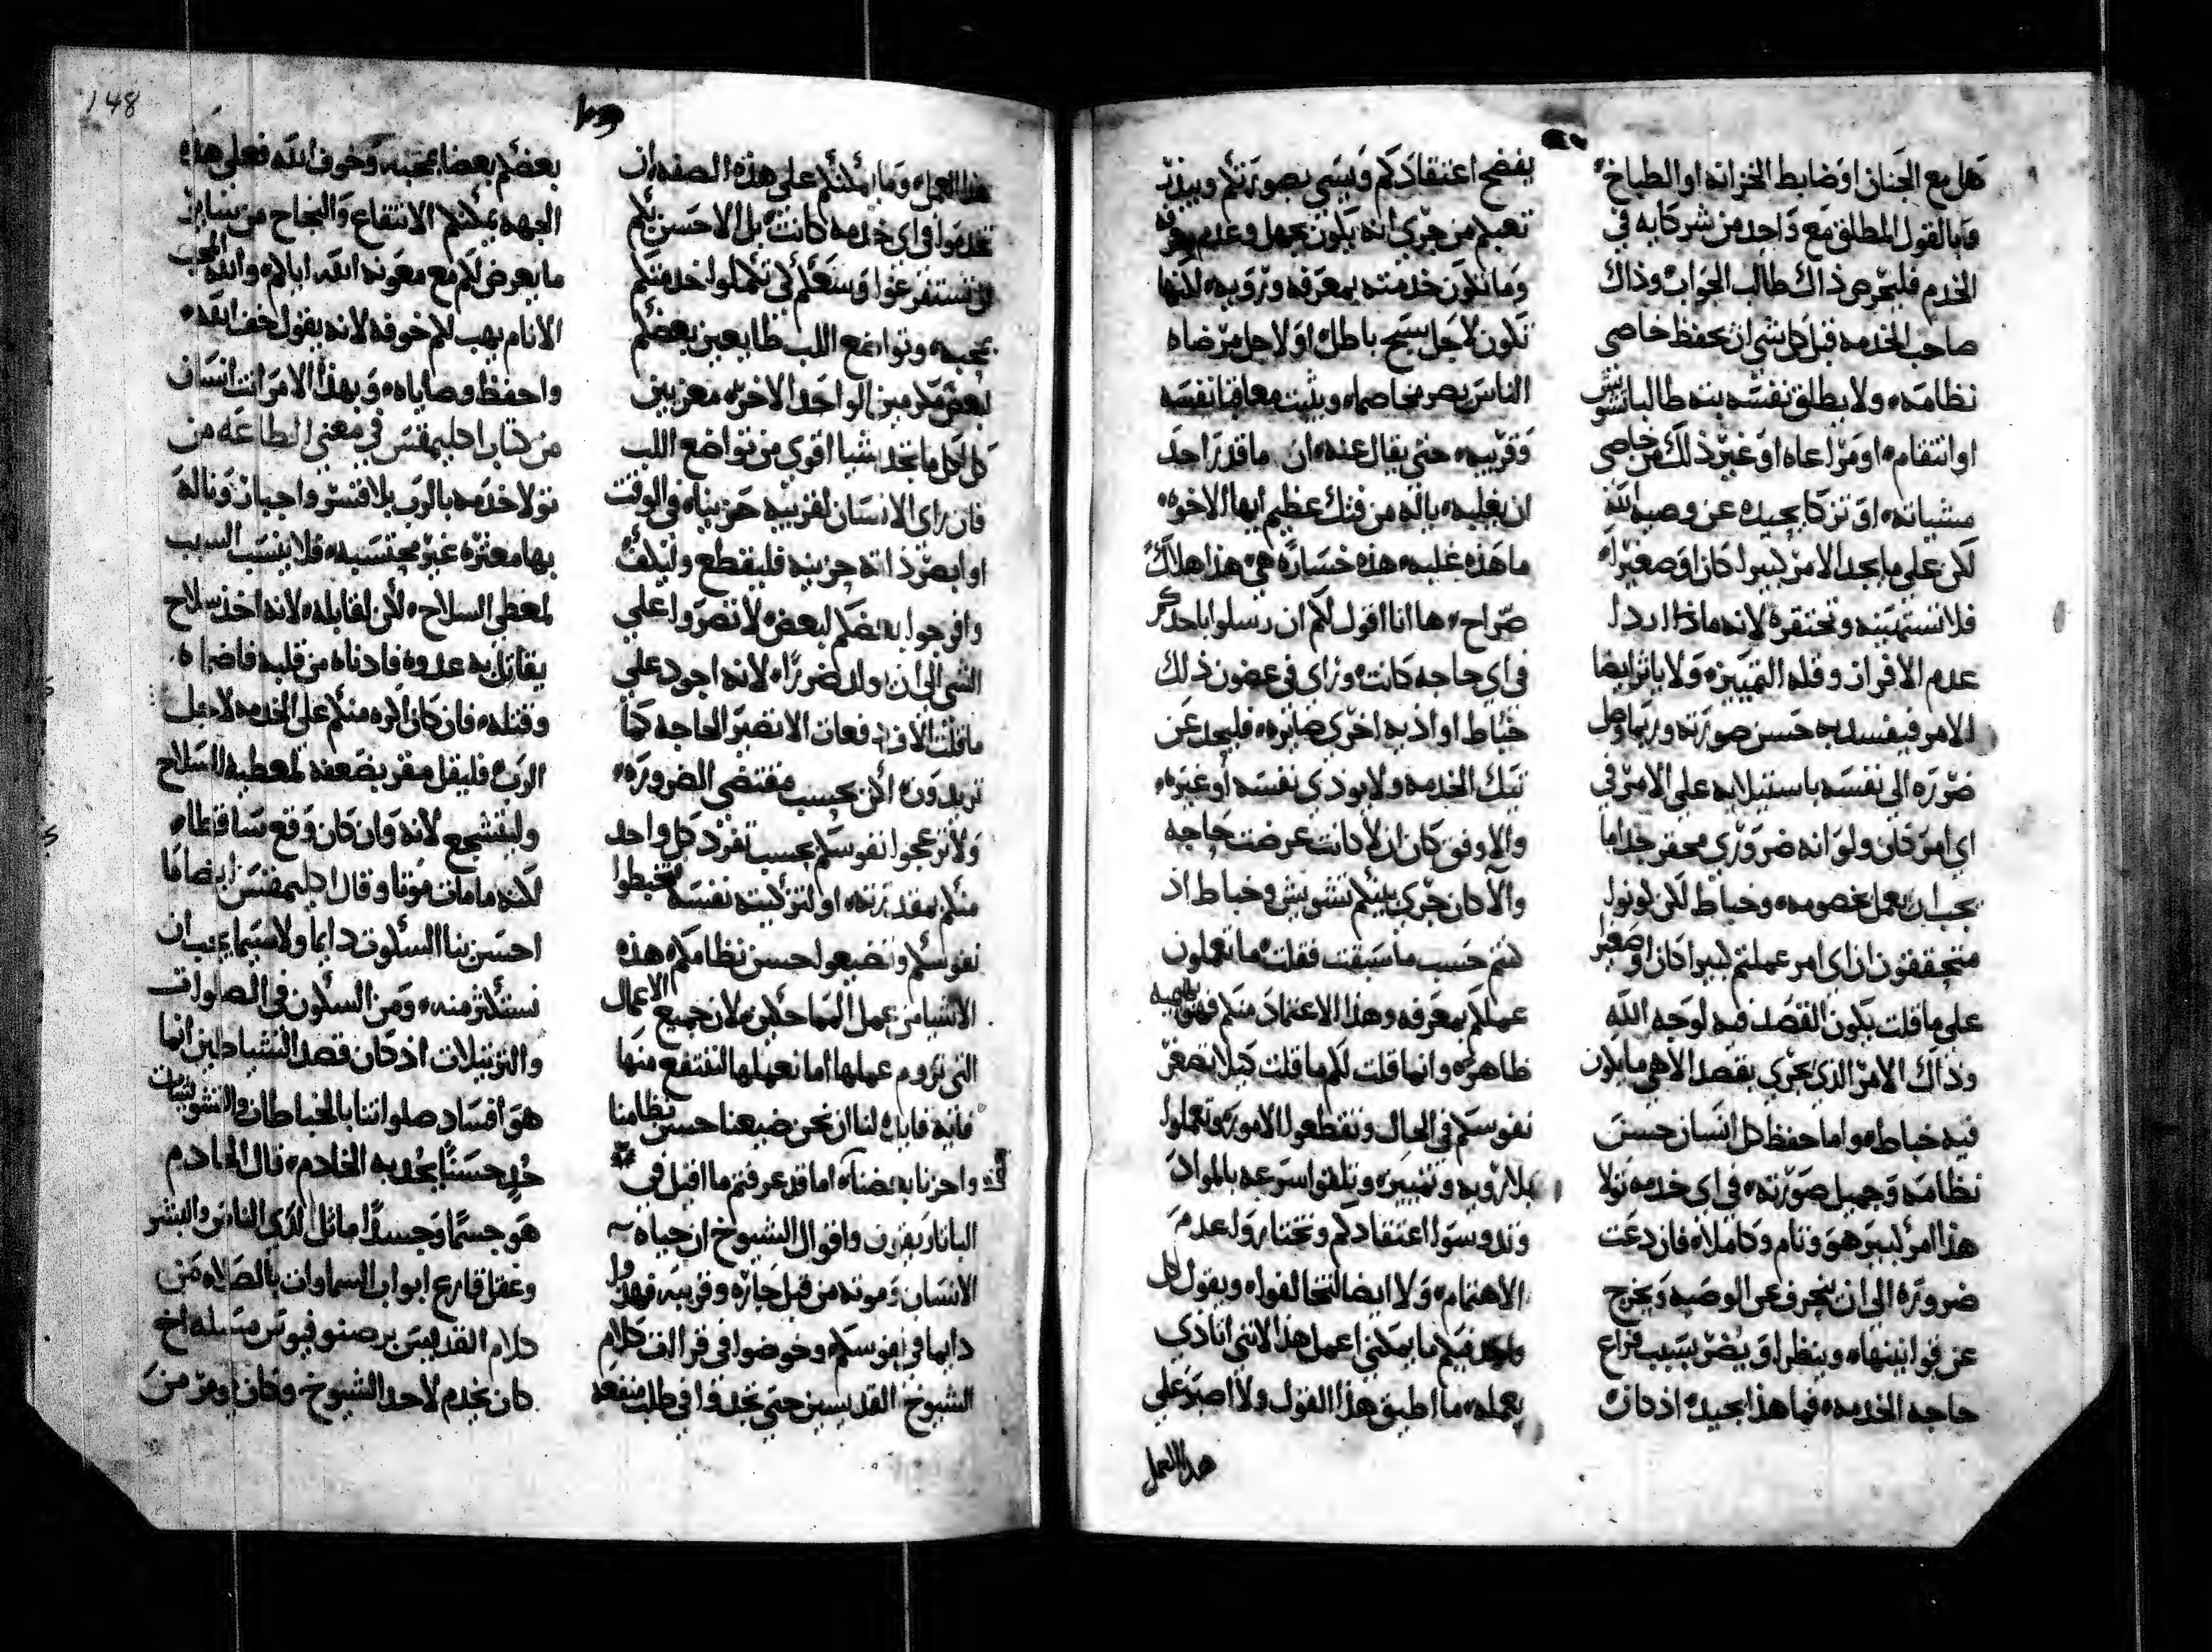 هل مع الجنان او ضابط الخزانه او الطباخ
وبالقول المطلق مع واحد من شركايه في
الخدم فليحرص ذاك طالب الجواب وذاك
صاحب الخدمه قبل كل شي ان يحفظ خاصي
نظامه ولا يطلق نفسه بته طالبا تشويش
او انتقام او مراعاه او غير ذلك من خاصي
مشياته او تركا بحيده عن وصية الله
لكن علي ما يجد الامر كبيرا كان او صغيرا
فلا تستهينه وتحتقره لانه ماذا اردا
عدم الافراز وقله التمييز ولا ياثر ايضا
الامر فيفسد به حسن صورته وربما وصل
ضرره الي نفسه باستيلايه علي الامر في
اي امر كان ولو انه ضروري محقر جدا ما
يجب ان يعمل بخصومه وخباط لكن كونوا
متحققون ان اي امر عملتم كبيرا كان او صغير
علي ما قلت يكون القصد فيه لوجه الله
وذاك الامر الذي يجري بقصد الاهي ما يكون
فيه خباط واما حفظ كل انسان حسن
نظامه وجميل صورته في اي خدمه تولا
هذا امر كبير هو وتام وكاملا فان دعت
ضروره الي ان ينحرف عن الوصيه ويخرج
عن قوانينها وينظر او يضر بسبب فراغ
حاجه الخدمه فما هذا بجيد اذ كان
يفضح اعتقادكم ويسي بصورتكم ويبذر
تعبكم من جري انه يكون بجهل وعدم معرفه
وما تكون خدمته بمعرفه ورويه لانها
تكون لاجل سبح باطل او لاجل مرضاه
الناس يصر مخاصما ويثبت معاقبا نفسه
وقريبه حتي يقال عنه ان ما قدر احد
ان يغلبه باله من فتك عظيم ايها الاخوه
ما هذه غلبه هذه خساره هي هذا هلاك
صراح ها انا اقول لكم ان رسلوا باحدكم
في اي حاجه كانت وراي في غضون ذلك
خباط او اذيه اخري صايره فليحد عن
تيك الخدمه ولا يوذي نفسه او غيره
والاوفق كان ان لا كانت عرضت حاجه
والا كان جري بينكم تشويش وخباط اذ
كنتم حسب ما سبقت فقلت ما تعملون
عملكم بمعرفه وهذا الاعتماد منكم فهو بهيميه
ظاهره وانما قلت لكم ما قلت كيلا تصغر
نفوسكم في الحال وتقطعوا الامور وتعملوا
بلا رويه وتمييز وتلقوا سرعه بالمواد
وتدوسوا اعتقادكم وتختاروا عدم
الاهتمام ولا ايضا لتخالفوا ويقول كل
واحد فيكم ما يمكنني اعمل هذا لانني اتاذي
بعمله ما اطيق هذا القول ولا اصبر علي
هذا العمل
هذا العمل وما يمكنكم علي هذه الصفه ان
تخدموا في اي خدمه كانت بل الاحسن بكم
ان تستفرغوا وسعكم لكي تكملوا خدمتكم
بمحبه وتواضع اللب طايعين بعضكم
لبعض مكرمين الواحد الاخر معزيين
كل لكل ما تجد شيا اقوي من تواضع اللب
فان راي الانسان لقريبه حزينا في الوقت
او ابصر ذاته حزينه فليقطع وليكف
وافرجوا بعضكم لبعض لا تصروا علي
الشي الي ان يولد ضررا لانه اجود علي
ما قلت الاف دفعات الا تصير الحاجه كما
تريدون لكن بحسب مقتضي الضروره
ولا تزعجوا نفوسكم بحسب تفرد كل واحد
منكم بمقدرته او لتزكيته نفسه لتخبطوا
نفوسكم وتضيعوا حسن نظامكم هذه
الاشيا من عمل المماحكين لان جميع الاعمال
التي نروم عملها انما نعملها لننتفع منها
فايه فايده لنا ان نحن ضيعنا حسن نظامنا
واحزنا بعضنا اما قد عرفتم ما اقيل في
الباتاريقون واقوال الشيوخ ان حياه
الانسان وموته من قبل جاره وقريبه فهذوا
دايما في نفوسكم وخوضوا في قرااات كلام
الشيوخ القديسين حتي تجدوا في طلب منفعه
148
بعضكم بعضا بمحبه وخوف الله فعلي هذه
الجهه يمكنكم الانتفاع والنجاح من ساير
ما يعرض لكم مع معونه الله اياكم والله المحب
الانام يهب لكم خوفه لانه يقول خف الله
واحفظ وصاياه وبهذا الامر انت انسان
من كتاب اكليمقس في معني الطاعه من
تولا خدمه بالرب بلا قسر واجبار وناله
بها معثره غير محتسبه فلا ينسب السبب
لمعطي السلاح لكن لقابله لانه اخذ سلاح
يقاتل به عدوه فادناه من قلبه فاضراه
وقتله فان كان اكره منكم علي الخدمه لاجل
الرب فليقل مقر بضعفه لمعطيه السلاح
وليتشجع لانه وان كان وقع ساقطا
لكنه ما مات موتا وقال اكليمقس ايضا ما
احسن بنا السكوت دايما ولا سيما يجب ان
نستكثر منه ومن السكون في الصلوات
والترتيلات اذ كان قصد الشياطين انما
هو افساد صلواتنا بالخباطات والتشويشات
خد حسنا بجد به الخادم قال الخادم
هو جسما وجسدا ماثل لدي الناس والبشر
وعقل قارع ابواب السماوات بالصلاه من
كلام القديس برصنوفيوس مسيله اخ
كان يخدم لاحد الشيوخ وكان يومر من